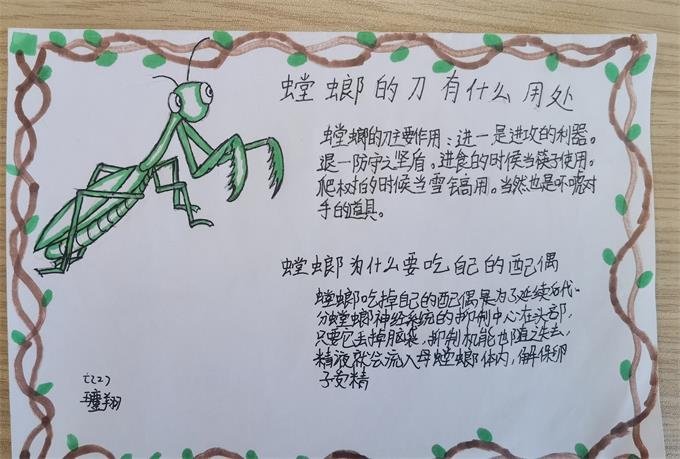 螳螂的刀有什么用处
螳螂的刀主要作用：进一是进攻的利器。
退一防守之坚盾。进食的时候当筷子使用。
爬树的时候当雪镐用。当然也是吓唬对
手的道具。
螳螂为什么要吃自己的配偶
螳螂吃掉自己的配偶是为了延续后代.
螳螂神经系统的抑制中心在头部,
只要它去掉脑袋,抑制机能也随之失去,
精液就会流入母螳螂体内,保卵
子受精
翔